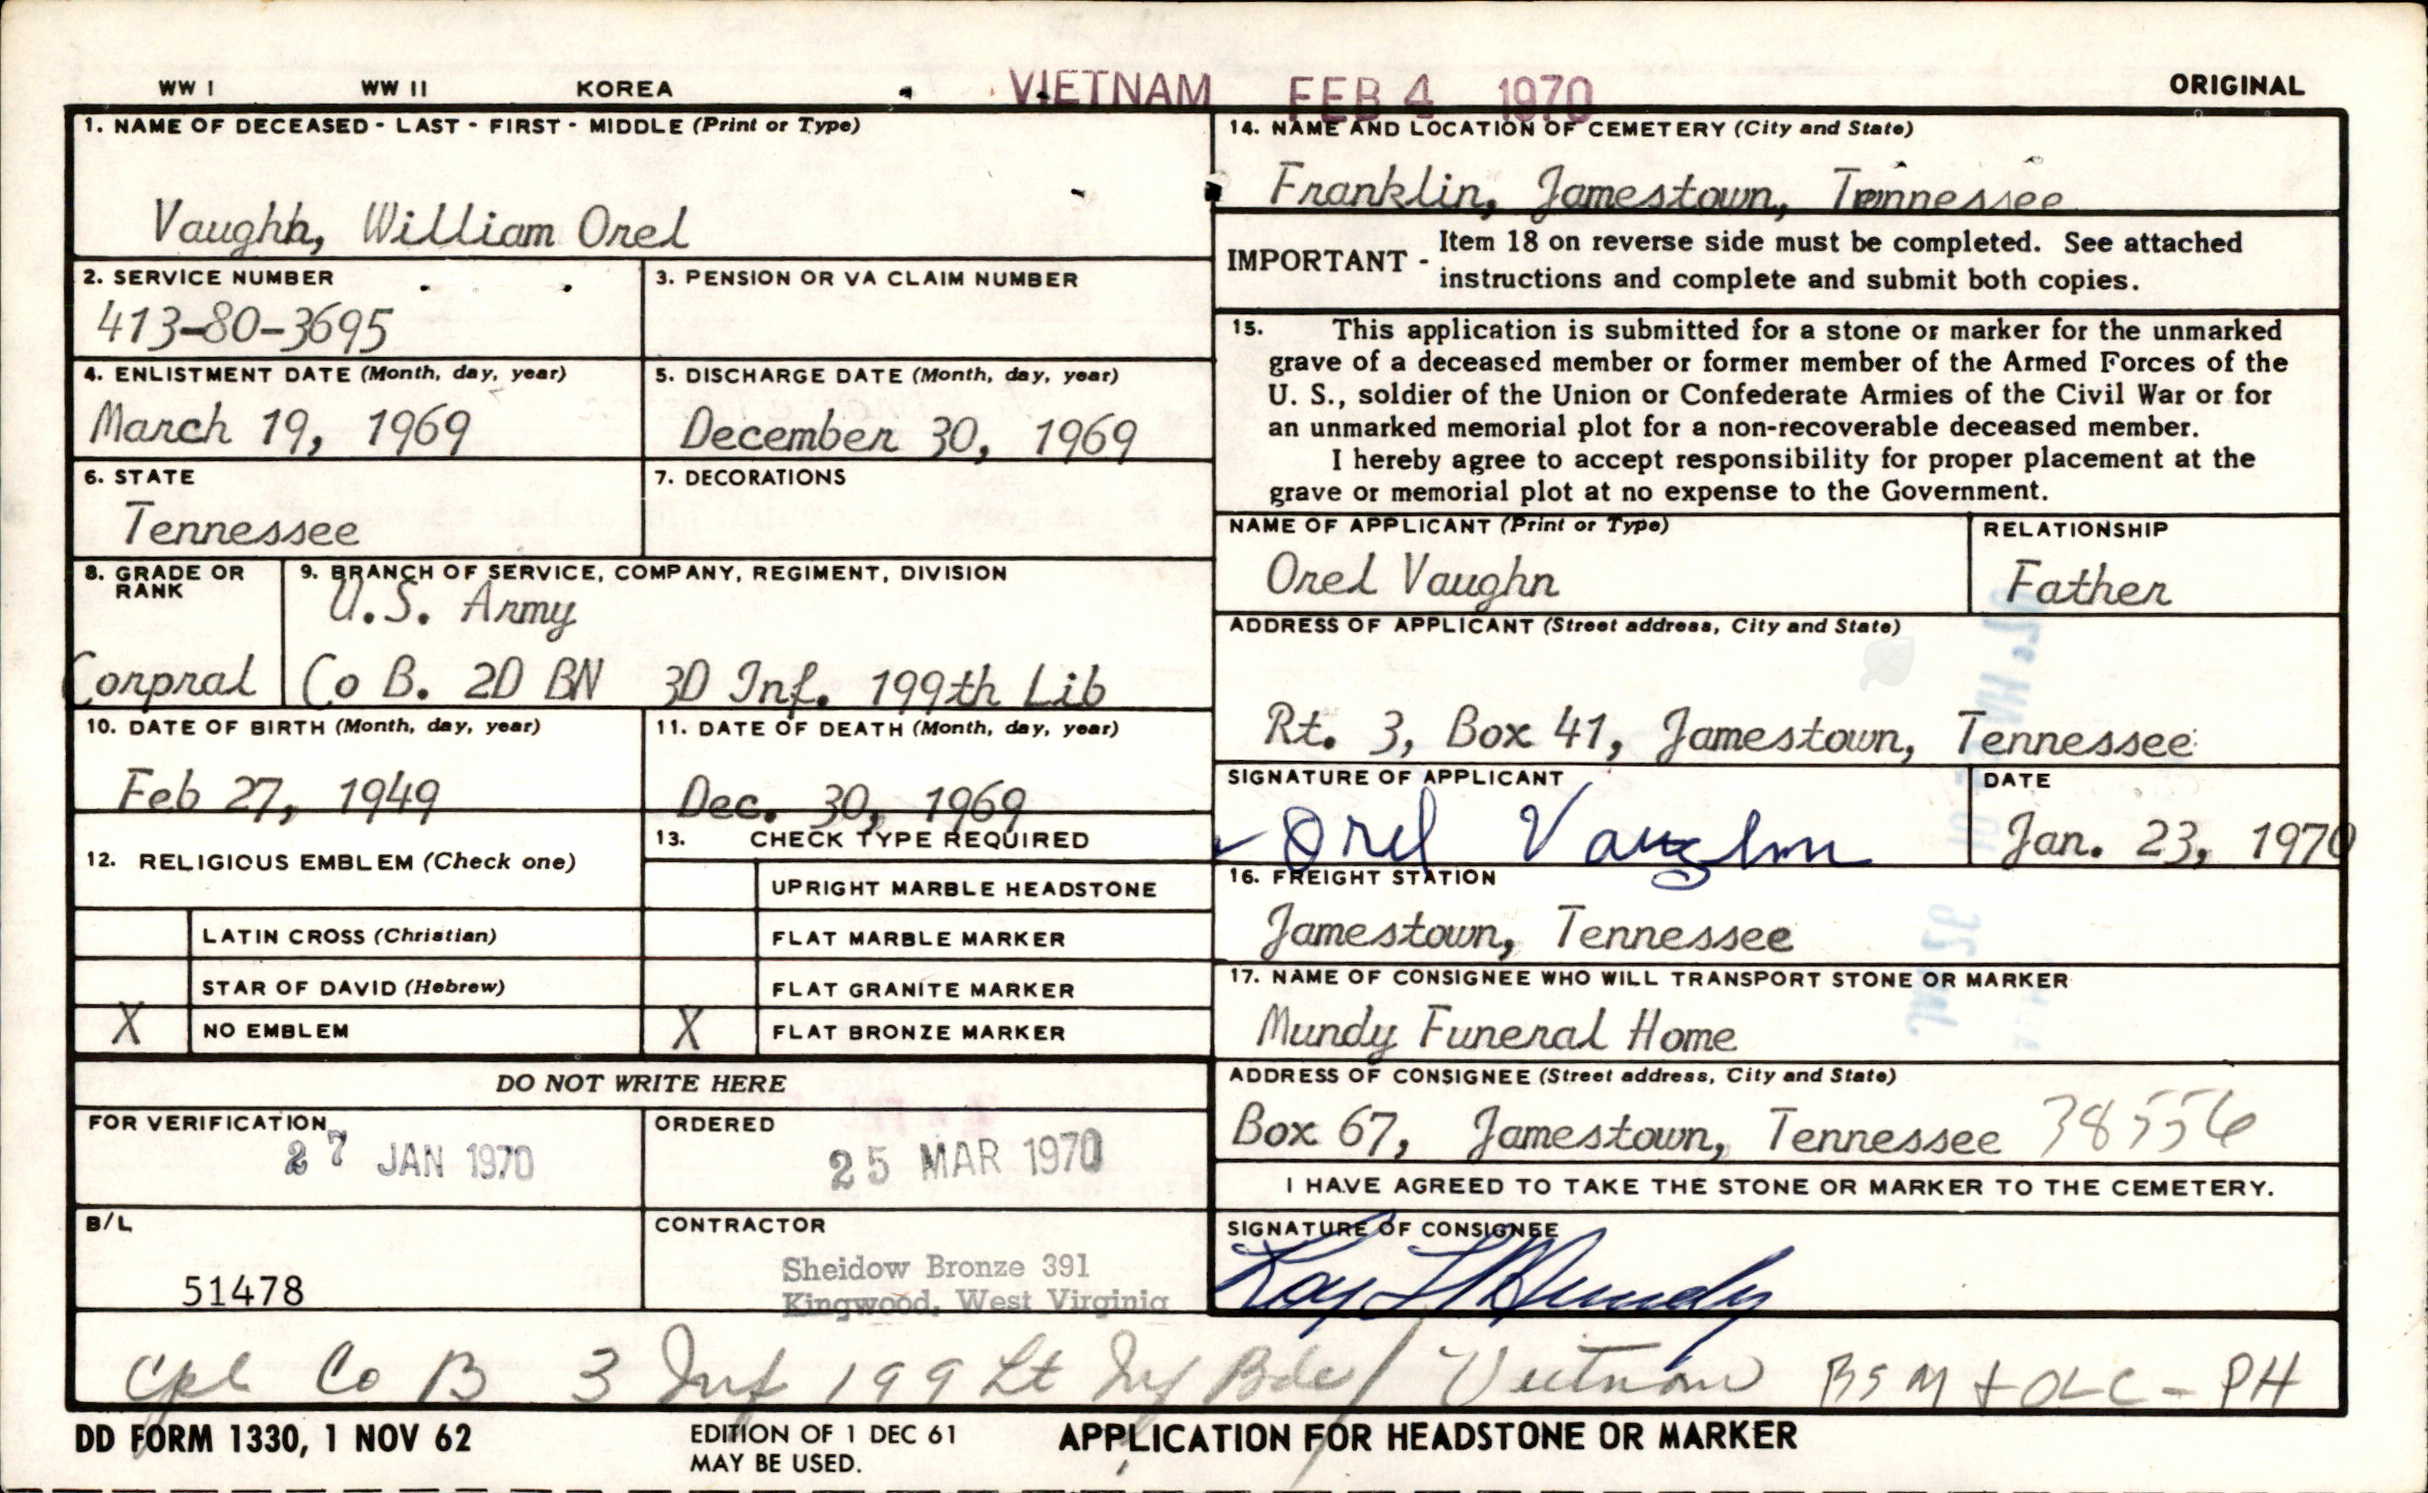 WW I WW II KOREA VIETNAM FEB 4 1970 ORIGINAL
1. NAME OF DECEASED - LAST - FIRST - MIDDLE (Print or Type)
Vaughn, William Orel
2. SERVICE NUMBER
413-80-3695
3. PENSION OR VA CLAIM NUMBER
4. ENLISTMENT DATE (Month, day, year)
March 19, 1969
5. DISCHARGE DATE (Month, day, year)
December 30, 1969
6. STATE
Tennessee
7. DECORATIONS
8. GRADE OR
RANK
Corpral
9. BRANCH OF SERVICE, COMPANY, REGIMENT, DIVISION
U.S. Army
Co B. 2D BN 3D Inf. 199th Lib
10. DATE OF BIRTH (Month, day, year)
Feb 27, 1949
11. DATE OF DEATH (Month, day, year)
Dec. 30, 1969
12. RELIGIOUS EMBLEM (Check one)
LATIN CROSS (Christian)
STAR OF DAVID (Hebrew)
X NO EMBLEM
13. CHECK TYPE REQUIRED
UPRIGHT MARBLE HEADSTONE
FLAT MARBLE MARKER
FLAT GRANITE MARKER
X FLAT BRONZE MARKER
DO NOT WRITE HERE
FOR VERIFICATION
27 JAN 1970
ORDERED
25 MAR 1970
B/L
51478
CONTRACTOR
Sheidow Bronze 391
Kingwood, West Virginia
14. NAME AND LOCATION OF CEMETERY (City and State)
Franklin, Jamestown, Tennessee
IMPORTANT - Item 18 on reverse side must be completed. See attached
instructions and complete and submit both copies.
15. This application is submitted for a stone or marker for the unmarked
grave of a deceased member or former member of the Armed Forces of the
U. S., soldier of the Union or Confederate Armies of the Civil War or for
an unmarked memorial plot for a non-recoverable deceased member.
I hereby agree to accept responsibility for proper placement at the
grave or memorial plot at no expense to the Government.
NAME OF APPLICANT (Print or Type)
Orel Vaughn
RELATIONSHIP
Father
ADDRESS OF APPLICANT (Street address, City and State)
Rt. 3, Box 41, Jamestown, Tennessee
SIGNATURE OF APPLICANT
Orel Vaughn
DATE
Jan. 23, 1970
16. FREIGHT STATION
Jamestown, Tennessee
17. NAME OF CONSIGNEE WHO WILL TRANSPORT STONE OR MARKER
Mundy Funeral Home
ADDRESS OF CONSIGNEE (Street address, City and State)
Box 67, Jamestown, Tennessee 38556
I HAVE AGREED TO TAKE THE STONE OR MARKER TO THE CEMETERY.
SIGNATURE OF CONSIGNEE
Mundy
Cpl Co B 3 Inf 199 Lt Inf Bde / Vietnam BSM & OLC - PH
DD FORM 1330, 1 NOV 62
EDITION OF 1 DEC 61
MAY BE USED.
APPLICATION FOR HEADSTONE OR MARKER